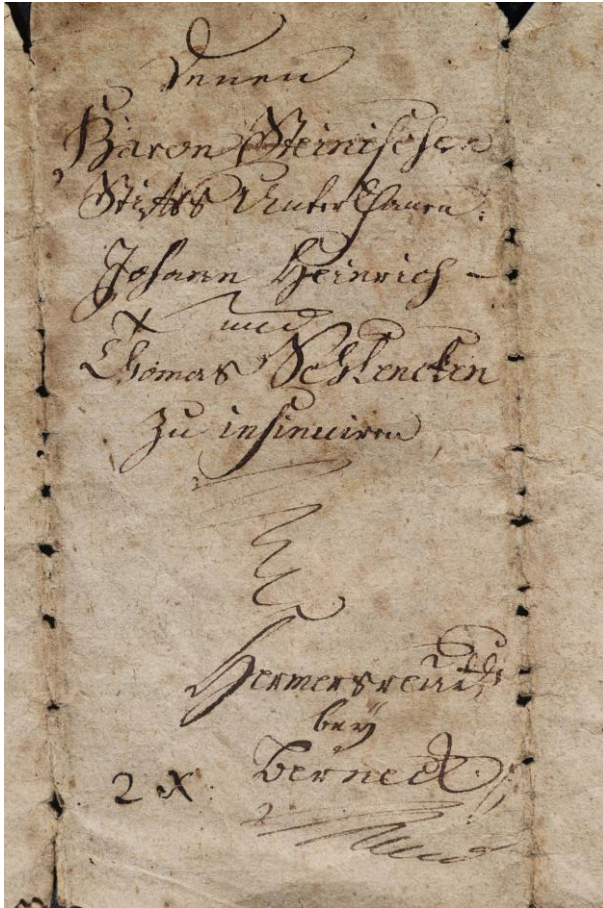 Denen
Baron Steinischen
Stiffts Unterthanen:
Johann Heinrich –
und
Thomas Schlencken
zu insinuiren
Hermersreuth
bey
Berneck
2 x.